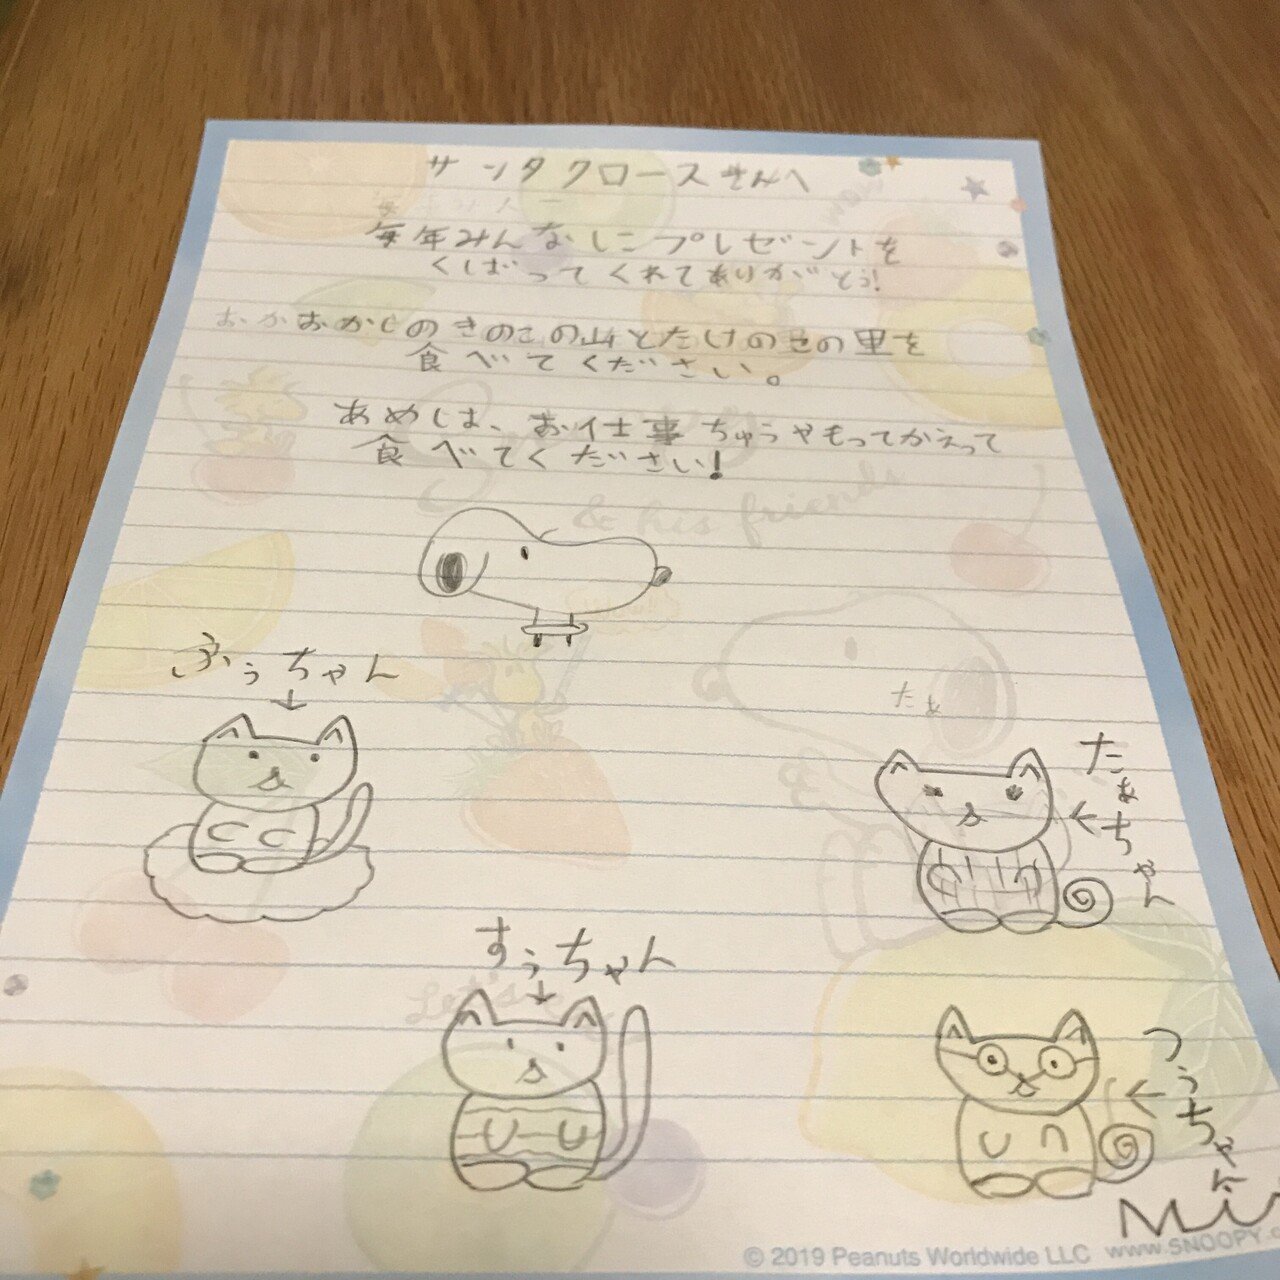 サンタクロースさんへ
毎年みんなしにプレゼントを
くばってくれてありがとう!
おかおかしのきのこの山とたけのこの里を
食べてください。
あめしは、お仕事ちゅうやもってかえって
食べてください!
& his friends
ふぅちゃん
たぁ
たぁちゃん
すぅちゃん
Let's
つぅちゃん
© 2019 Peanuts Worldwide LLC www.SNOOPY.